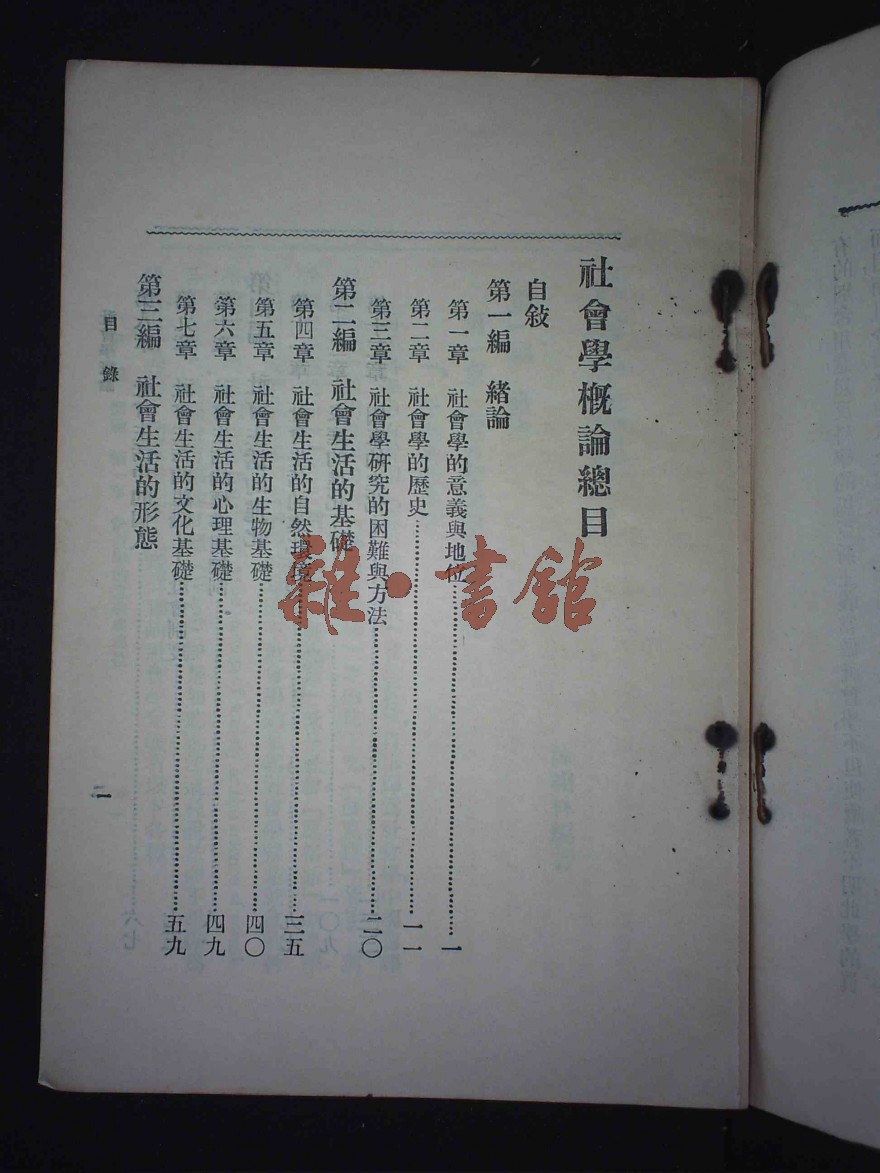 社會學概論總目
自敍
第一編　緒論
第一章　社會學的意義與地位……一
第二章　社會學的歷史……一一
第三章　社會學研究的困難與方法……二〇
第二編　社會生活的基礎
第四章　社會生活的自然環境……三五
第五章　社會生活的生物基礎……四〇
第六章　社會生活的心理基礎……四九
第七章　社會生活的文化基礎……五九
第三編　社會生活的形態
目錄
雜·書館